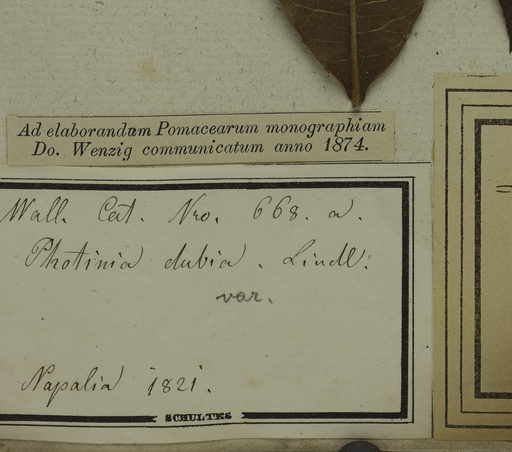 Ad elaborandum Pomacearum monographiam
Do. Wenzig communicatum anno 1874.
Wall. Cat. Nro. 668. a.
Photinia dubia. Lindl:
var.
Napalia 1821.
SCHULTES